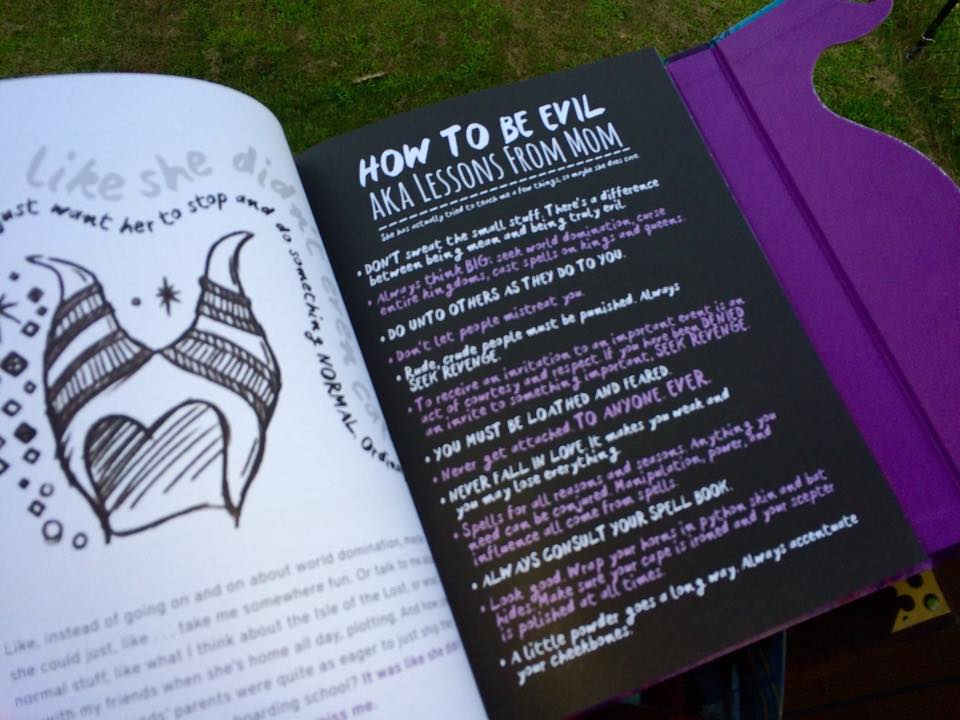 Like she did
just want her to stop and do something NORMAL.
Like, instead of going on and on about world domination,
she could just, like . . . take me somewhere fun. Or talk to me
normal stuff, like what I think about the Isle of the Lost, or
with my friends when she's home all day, plotting. And how
parents were quite as eager to just ship
boarding school? It was like she
miss me.
HOW TO BE EVIL
AKA LESSONS FROM MOM
She has actually tried to teach me a few things, so maybe she does care.
• DON'T sweat the small stuff. There's a difference
between being mean and being truly evil.
• Always think BIG: seek world domination, curse
entire kingdoms, cast spells on kings and queens.
• DO UNTO OTHERS AS THEY DO TO YOU.
• Don't let people mistreat you.
• Rude, crude people must be punished. Always
SEEK REVENGE.
• To receive an invitation to an important event is an
act of courtesy and respect. If you have been DENIED
an invite to something important, SEEK REVENGE.
• YOU MUST BE LOATHED AND FEARED.
• Never get attached. TO ANYONE. EVER.
• NEVER FALL IN LOVE. It makes you weak and
you may lose everything.
• Spells for all reasons and seasons. Anything you
need can be conjured. Manipulation, power, and
influence all come from spells.
• ALWAYS CONSULT YOUR SPELL BOOK.
• Look good. Wrap your horns in python skin and bat
hides. Make sure your cape is ironed and your scepter
is polished at all times.
• A little powder goes a long way. Always accentuate
your cheekbones.